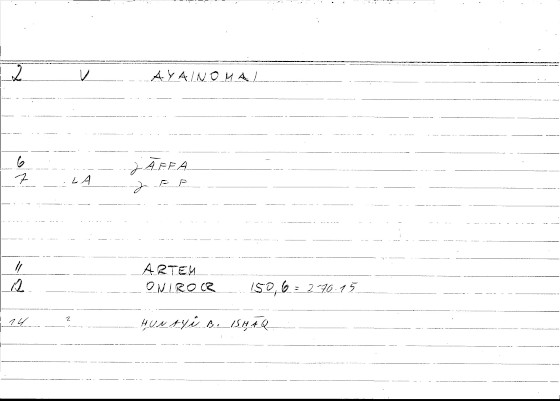 2 V ΑΥΑΙΝΟΜΑΙ
6 ǧĀFFA
7 LA ǧ F F
11 ARTEM
12 ONIROCR 150,6 = 270 15
14 " ḤUNAYN B. ISḤĀQ